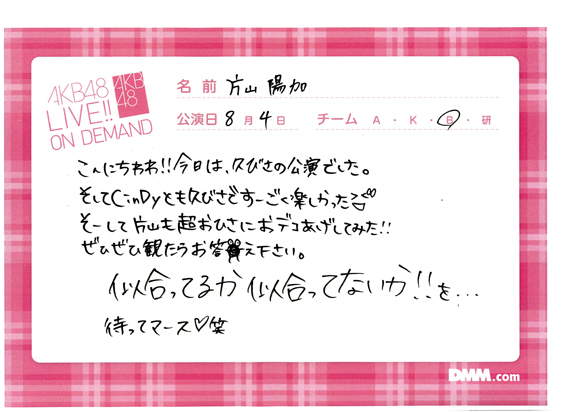 AKB48
LIVE!!
ON DEMAND
AKB
48
名前 片山 陽加
公演日 8月4日 チーム A・K・B・研
こんにちわわ!!今日は、久びさの公演でした。
そしてCinDyとも久びさですーごく楽しかった
そーして片山も超おひさにおデコあげしてみた!!
ぜひぜひ観たらお答え下さい。
似合ってるか似合ってないか!!を…
待ってマース♡笑
DMM.com